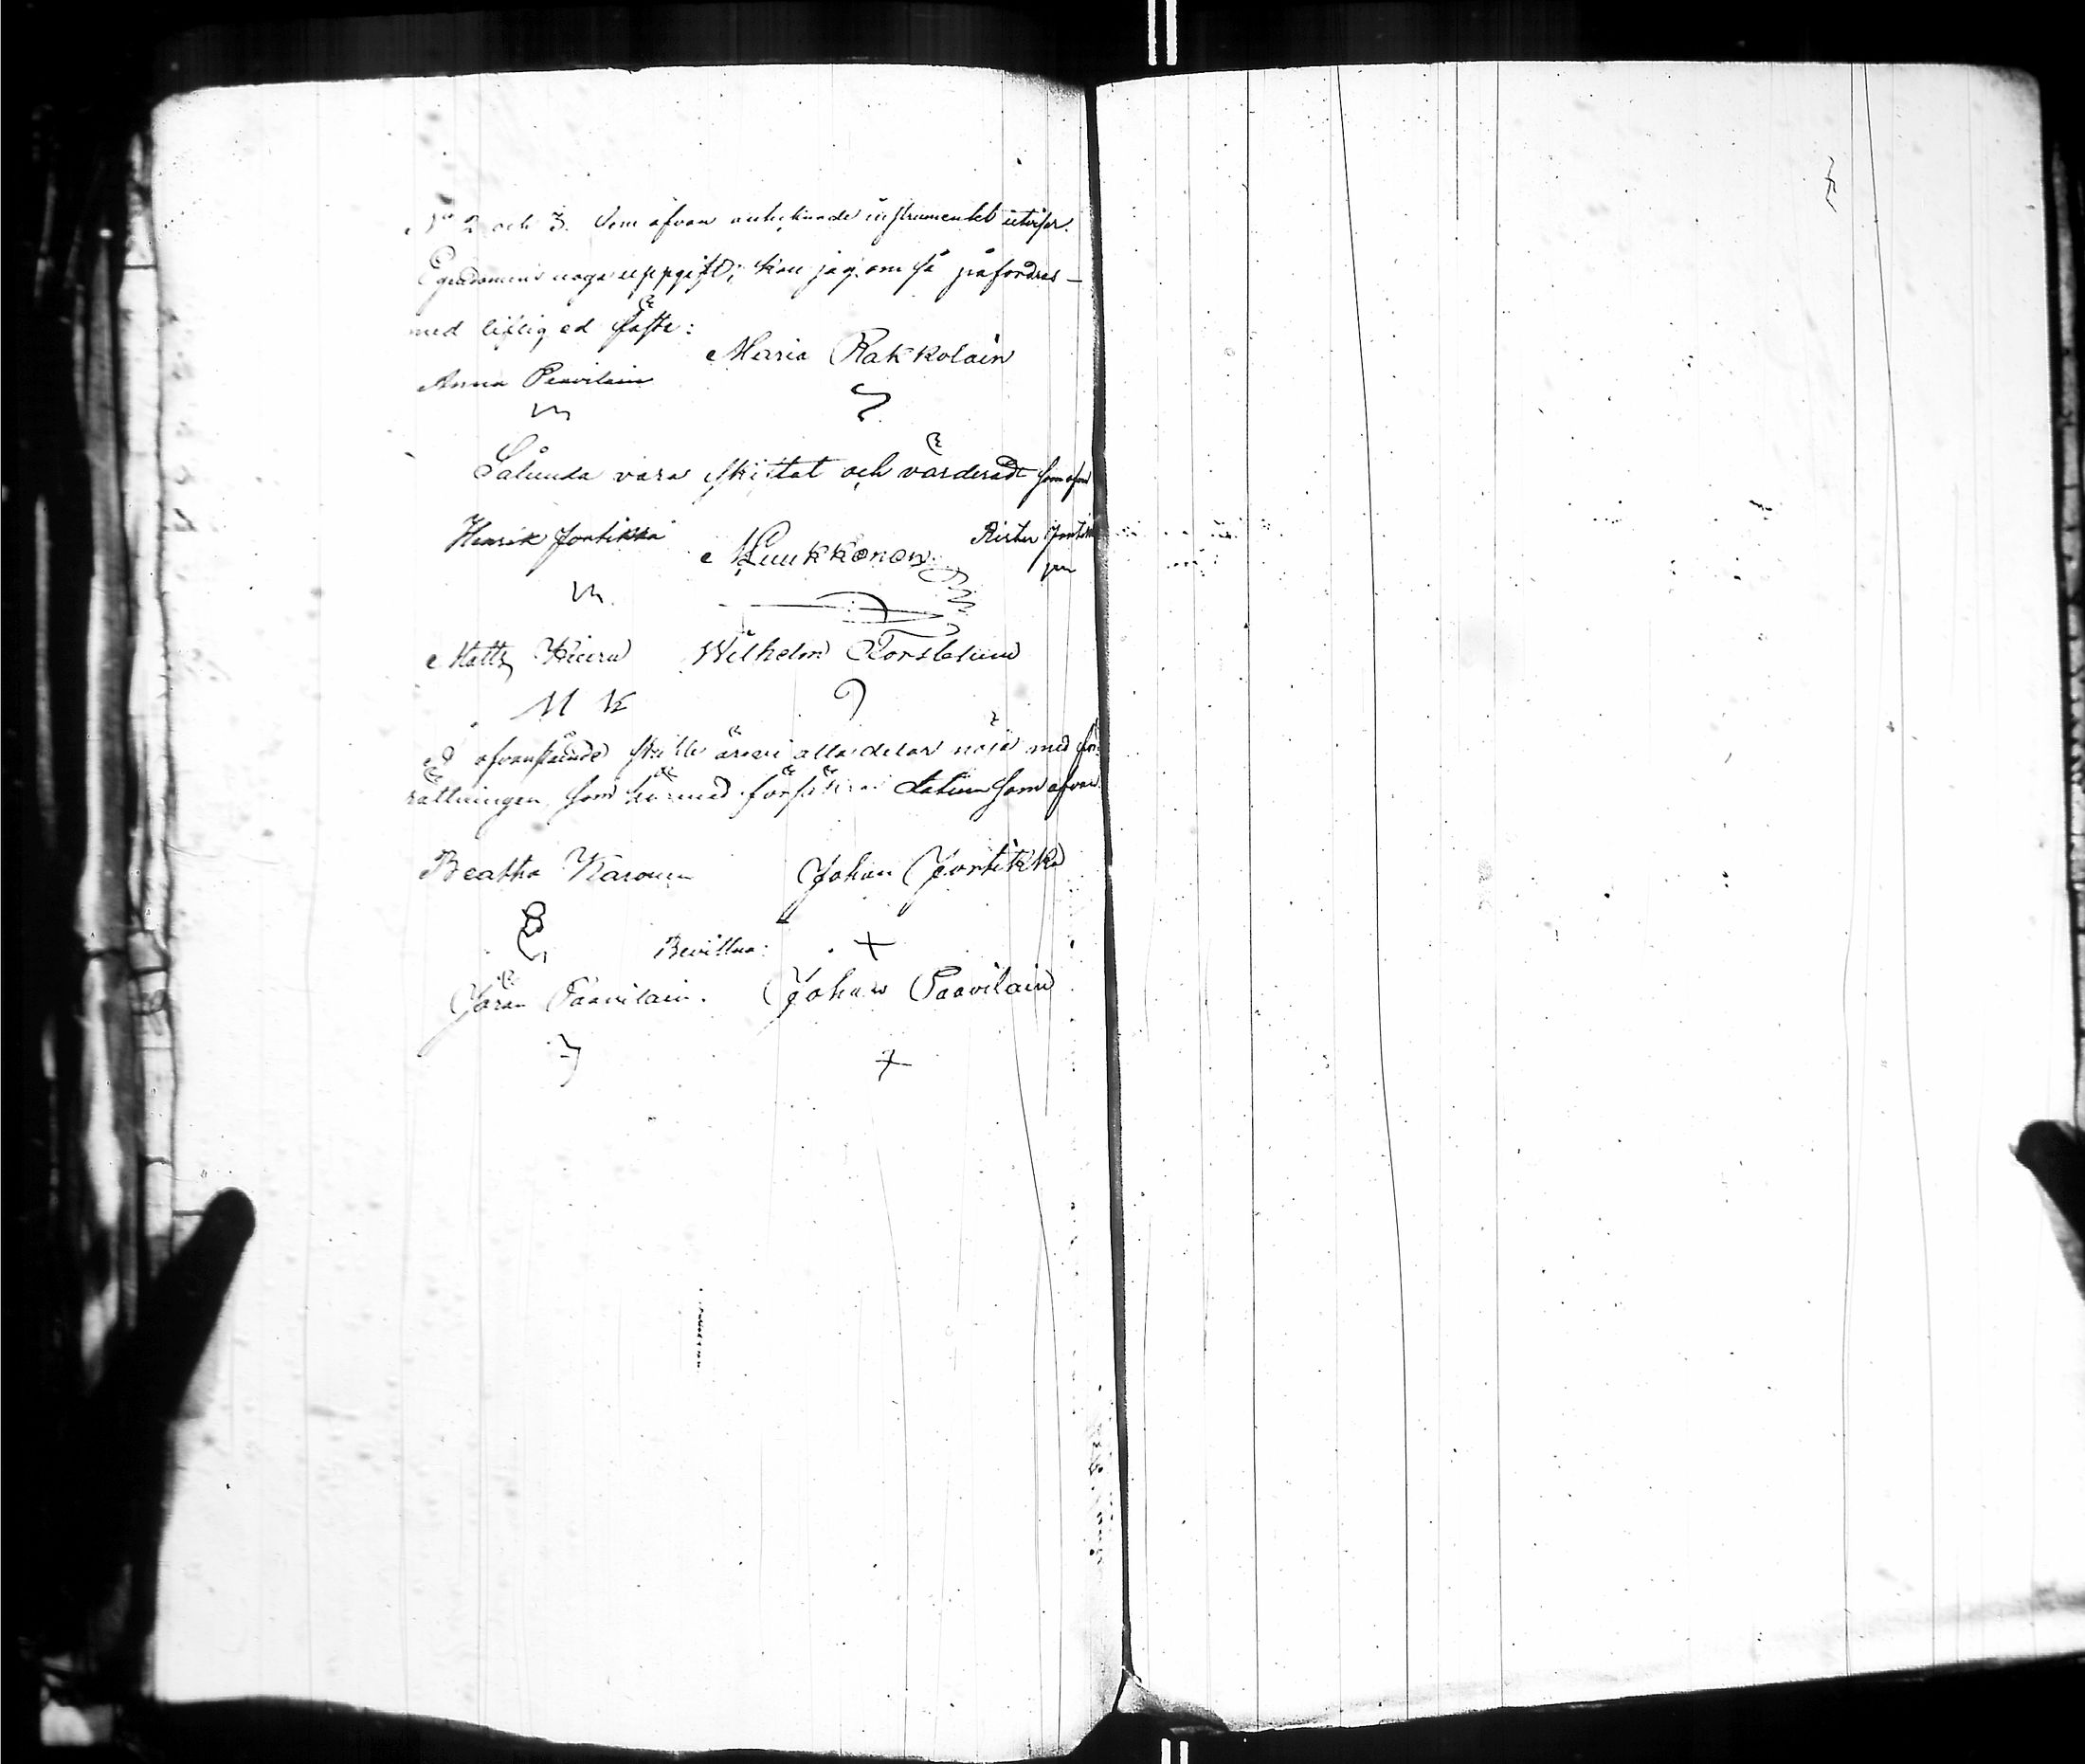 No 2 och 3. Som åfvan antecknade instrumentet utviser.
Egendomens noga uppgift; kan jag om så påfordras
med liflig ed fästa:
Maria Rakkolain
Anna Paavilain
Sålunda vara skiftat och värderadt som ofvan
Henrik Jortikka
M Luukkonen
Matts Kiuru Wilhelm Forslund
M K
afvanstående skifte äre vi alla delar nöjd med för:
rättningen som härmed försäkras Datum som ofvan
Beatha Karonen Johan Jortikka
Bevittna:
Göran Paavilain. Johan Paavilain